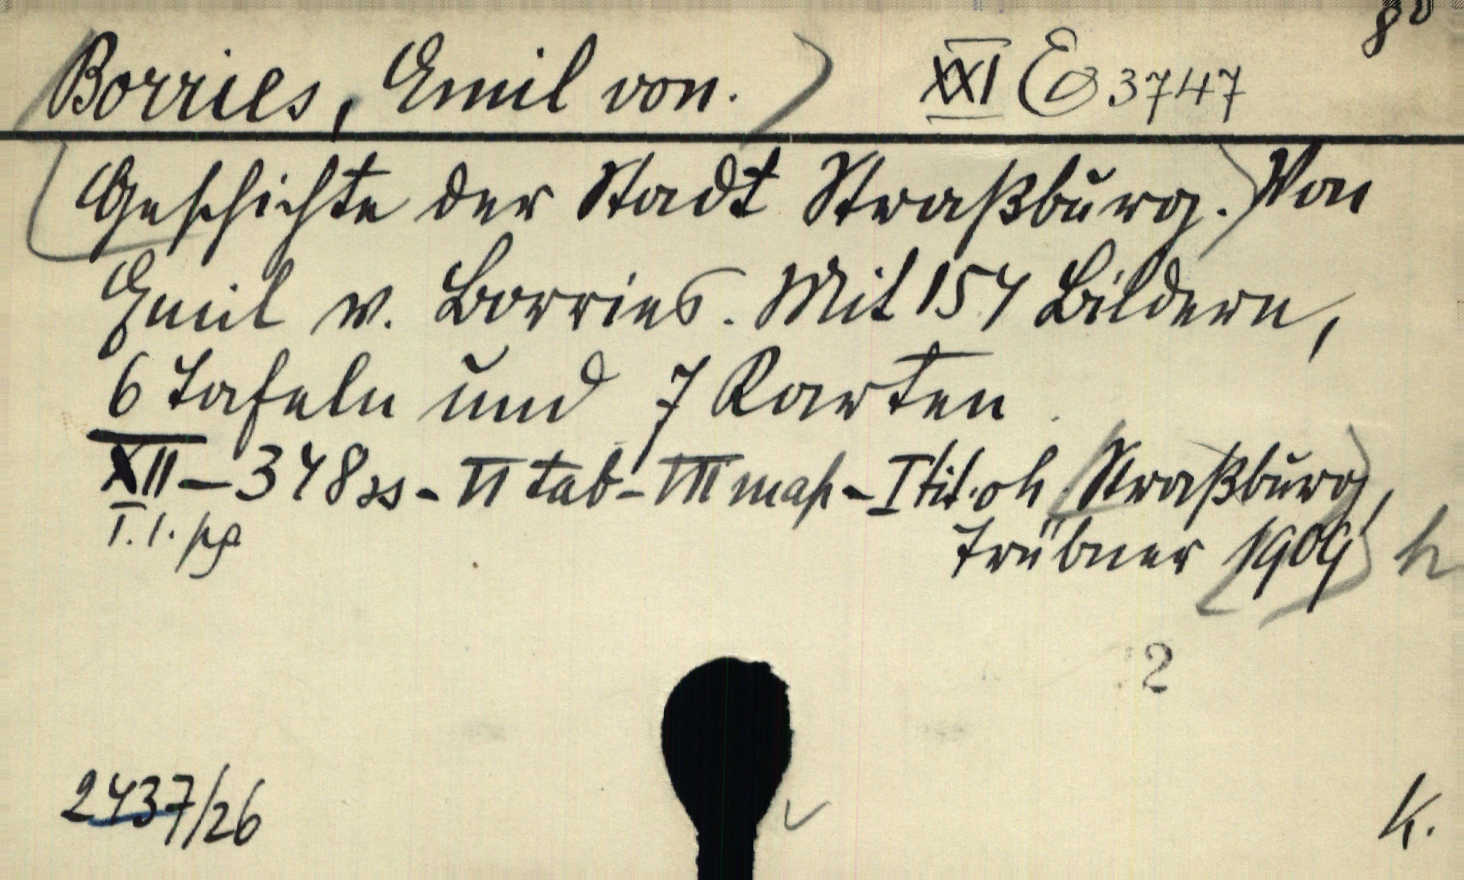 8°
Borries, Emil von. XXI E 3747
Geschichte der Stadt Straßburg. Von
Emil v. Borries. Mit 154 Bildern,
6 Tafeln und 7 Karten
XII - 348 ss - VI tab - VII map - I tit. oh Straßburg,
I. 1. pg Trübner 1909 h
2
2437/26
K.